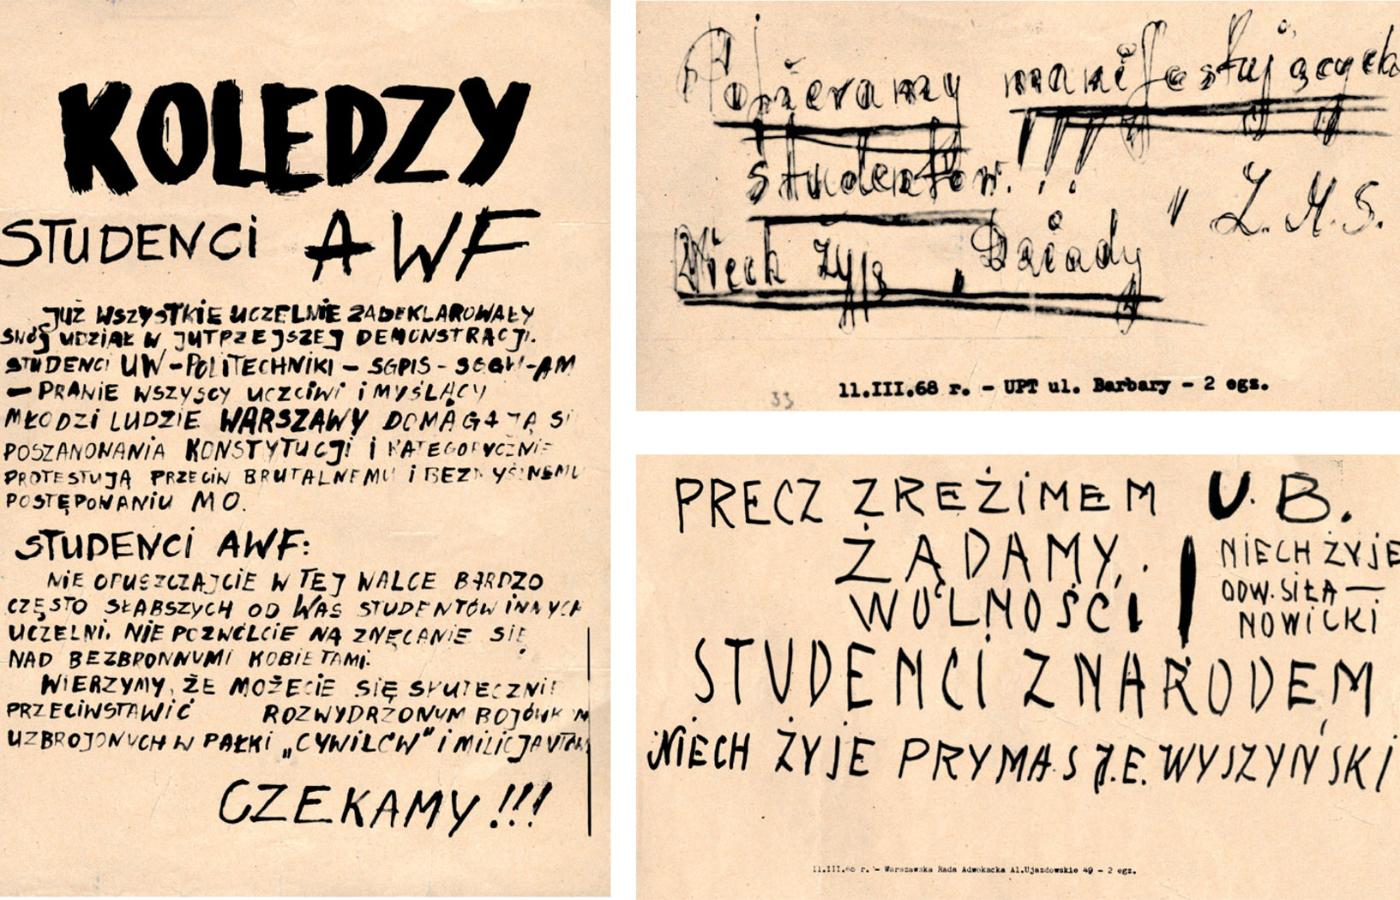 KOLEDZY
STUDENCI AWF
JUŻ WSZYSTKIE UCZELNIE ZADEKLAROWAŁY
SWÓJ UDZIAŁ W JUTRZEJSZEJ DEMONSTRACJI.
STUDENCI UW - POLITECHNIKI - SGPIS - SGGW - AM
— PRANIE WSZYSCY UCZCIWI i MYŚLĄCY
MŁODZI LUDZIE WARSZAWY DOMAGAJĄ SI
POSZANOWANIA KONSTYTUCJI i KATEGORYCZNIE
PROTESTUJĄ PRZECIW BRUTALNEMU i BEZMYŚLNEMU
POSTĘPOWANIU MO.
STUDENCI AWF:
NIE OPUSZCZAJCIE W TEJ WALCE BARDZO
CZĘSTO SŁABSZYCH OD WAS STUDENTÓW INNYCH
UCZELNI. NIE POZWÓLCIE NA ZNĘCANIE SIĘ
NAD BEZBRONNYMI KOBIETAMI.
WIERZYMY, ŻE MOŻECIE SIĘ SKUTECZNIE
PRZECIWSTAWIĆ ROZWYDRZONYM BOJÓWKOM
UZBROJONYCH W PAŁKI „CYWILÓW” i MILICJANTÓW
CZEKAMY !!!
Popieramy manifestujących
studentów. !!!
" Z.M.S.
Niech żyją „Dziady
33
11.III.68 r. - UPT ul. Barbary - 2 egz.
PRECZ Z REŻIMEM U.B.
ŻĄDAMY
WOLNOŚCI !
NIECH ŻYJE
ODW. SIŁA —
NOWICKI
STUDENCI Z NARODEM
NIECH ŻYJE PRYMAS J.E. WYSZYŃSKI
11.III.68 r. - Warszawska Rada Adwokacka Al.Ujazdowskie 49 - 2 egz.